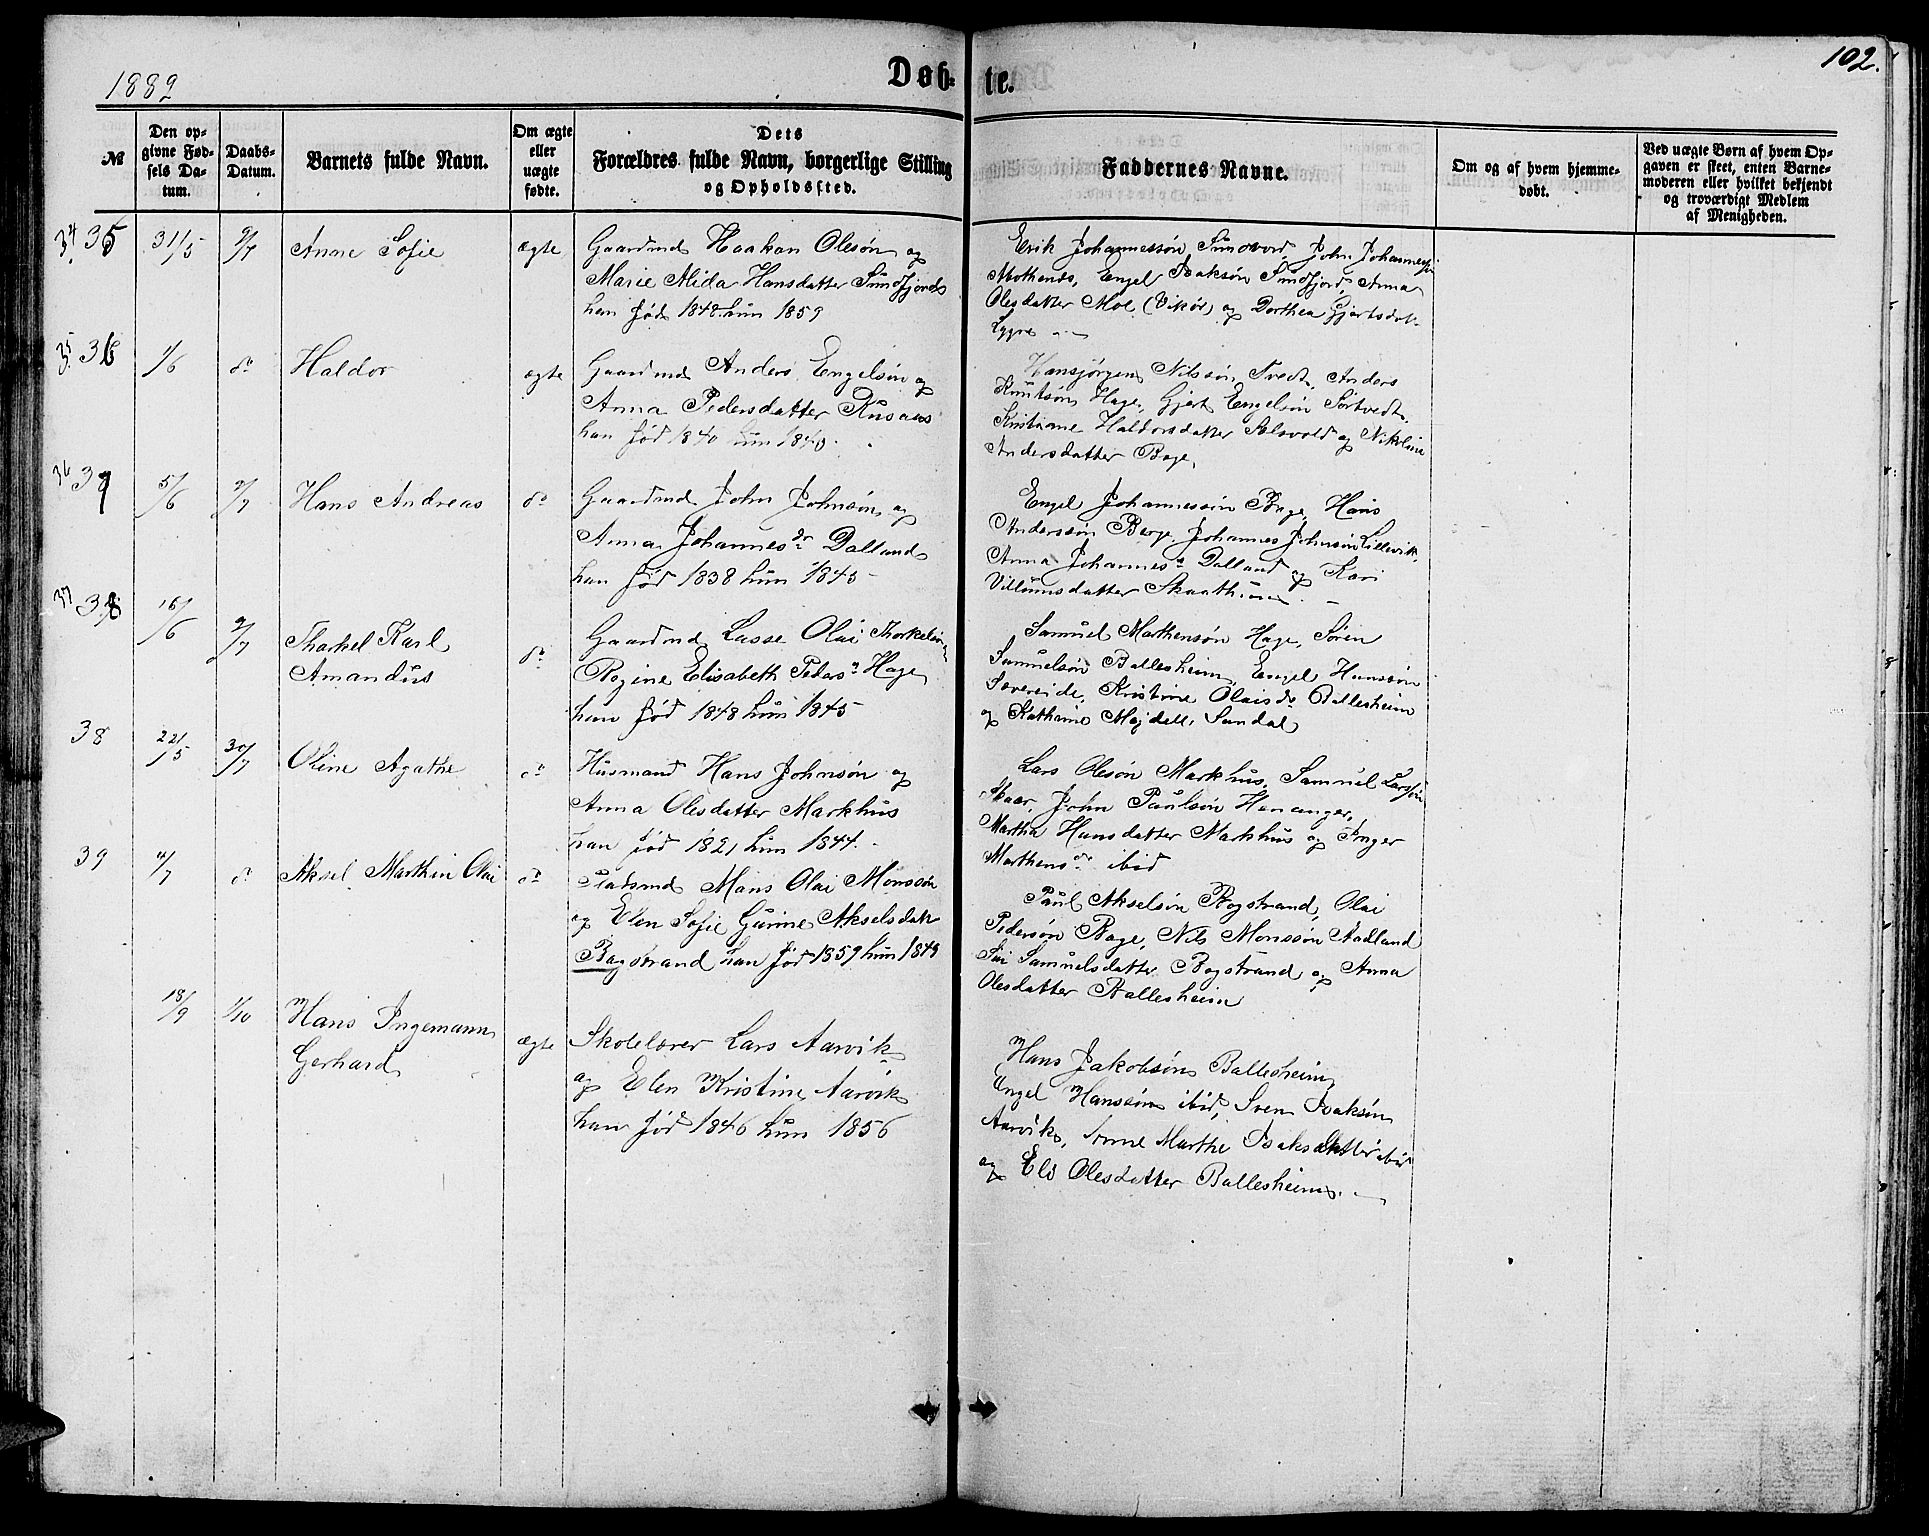 1882
Døb-
te.
102.
№
Den op-
givne Fød-
sels Da-
tum.
Daabs-
Datum.
Barnets fulde Navn.
Om ægte
eller
uægte
fødte.
Dets
Forældres fulde Navn, borgerlige Stilling
og Opholdssted.
Faddernes Navne.
Om og af hvem hjemme-
døbt.
Ved uægte Børn af hvem Op-
gaven er skeet, enten Barne-
moderen eller hvilket bekjendt
og troværdigt Medlem
af Menigheden.
34. 35
31/5
9/7
Anne Sofie
ægte
Gaardmd Haakon Olesøn og
Marie Alida Hansdatter Sundfjord
han født 1848 hun 1859
Erik Johannessøn Sundvord, John Johannessøn
Mothends, Engel Isaksøn Sundfjord, Anna
Olesdatter Moe (Vikør) og Dorthea Gjertsdat.
Lygre
35. 36
1/6
do
Haldor
ægte
Gaardmd Anders Engelsøn og
Anna Pedersdatter Rusaas
han født 1840 hun 1840.
Hansjørgen Nilssøn Tvedt, Anders
Knutsøn Hage, Gjert Engelsøn Sørtvedt,
Kristiane Haldorsdatter Solsvold og Nikoline
Andersdatter Bage,
36 37
5/6
9/7
Hans Andreas
do
Gaardmd John Johnsøn og
Anna Johannesdr Dalland
han født 1838 hun 1845
Engel Johannessøn Bage, Hans
Anderssøn Berge, Johannes Johnsøn Lillevik,
Anna Johannesdr Dalland og Kari
Villumsdatter Skaathun
37 38
16/6
9/7
Thorkel Karl
Amandus
do
Gaardmd Lasse Olai Thorkelsøn og
Regine Elisabeth Pedersdr Hage
han født 1848 hun 1845
Samuel Mathensøn Hage, Søren
Samuelsøn Ballesheim, Engel Hanssøn
Sævereide, Kristine Olaisdr Ballesheim
og Kathrine Majdell, Sandal
38
22/5
30/7
Oline Agathe
do
Husmand Hans Johnsøn og
Anna Olesdatter Markhus
han født 1821 hun 1844.
Lars Olesøn Markhus, Samuel Larssøn
Skaar, John Paulsøn Hananger,
Martha Hansdatter Markhus og Inger
Marthensdr ibid
39
4/7
do
Aksel Marthin Olai
do
Pladsmd Mons Olai Monssøn
og Elen Sofie Gurine Akselsdatr
Bogstrand han født 1859 hun 1848
Paul Akselsøn Bogstrand, Olai
Pedersøn Bage, Nils Monssøn Aadland
Siri Samuelsdatter Bogstrand og Anna
Olesdatter Ballesheim
18/9
1/10
Hans Ingemann
Gerhard
ægte
Skolelærer Lars Aarvik
og Elen Kristine Aarvik
han født 1846 hun 1856
Hans Jakobsøn Ballesheim,
Engel Hanssøn ibid, Sven Isaksøn
Aarvik, Anne Marthe Isaksdatter ibid
og Eli Olesdatter Ballesheim.